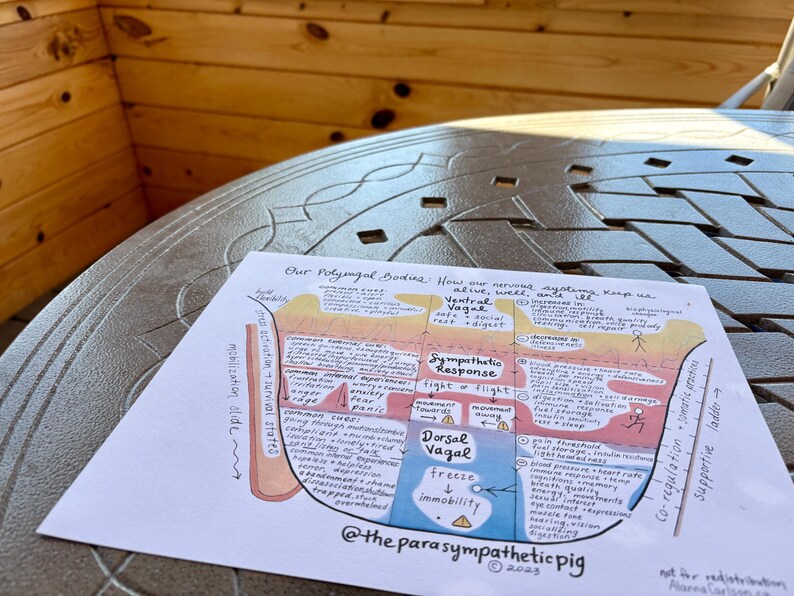 Our Polyvagal Bodies: How our nervous systems keep us
alive, well, and ill
build
flexibility
stress activation → survival states
mobilization slide
common cues:
present + alert
flexible + open
connected + curious
compassionate + mindful
creative + playful
Ventral
Vagal
safe + social
rest + digest
increases in:
digestion, motility
immune response
circulation, breath quality
communication, voice prosody
resting, cell repair
decreases in:
defensiveness
illness
biophysiological
changes
common external
common internal experiences:
frustration
irritation
anger
rage
worry + concern
anxiety
fear
panic
Sympathetic
Response
fight or flight
movement
towards
movement
away
blood pressure + heart rate
defensiveness
inflammation + cell damage
digestion + salivation
immune response
fuel storage
insulin sensitivity
rest + sleep
common cues:
going through motions/zombie
compliant + numb + clumsy
isolation + lonely + tired
can't listen or talk
common internal experiences:
hopeless + helpless
terror, depression
abandonment + shame
dissasociation, shutdown
trapped, stuck
overwhelmed
Dorsal
Vagal
freeze
immobility
pain threshold
fuel storage, insulin resistance
lightheadedness
blood pressure + heart rate
immune response + temp
cognitions + memory
breath quality
energy + movements
sexual interest
eye contact + expressions
muscle tone
hearing, vision
socializing
digestion
co-regulation + somatic practices
supportive ladder
@theparasympatheticpig
© 2023
not for redistribution
AlannaCarlson.ca